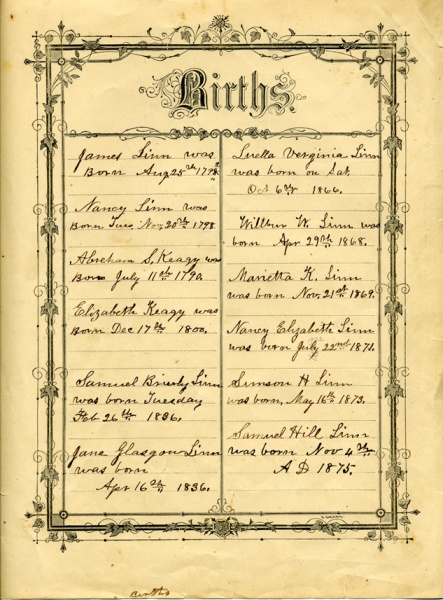 Births
James Linn was
Born Aug 25th
Nancy Linn was
Born Tues. Nov 20th 1798
Abreham S. Keagy was
Born July 11th 1790.
Elizabeth Keagy was
Born Dec 17th 1800.
Samuel Brierly Linn
was born Tuesday
Feb 26th 1836.
Jane Glasgow Linn
was born
Apr 16th 1836.
Luella Verginia Linn
was born on Sat.
Oct 6th 1866.
Wilbur W. Linn was
born Apr 29th 1868.
Marietta K. Linn
was born Nov. 21st 1869.
Nancy Elizabeth Linn
was born July 22nd 1871.
Simson H Linn
was born, May 16th 1873.
Samuel Hill Linn
was born Nov 4th
A D 1875.
Births